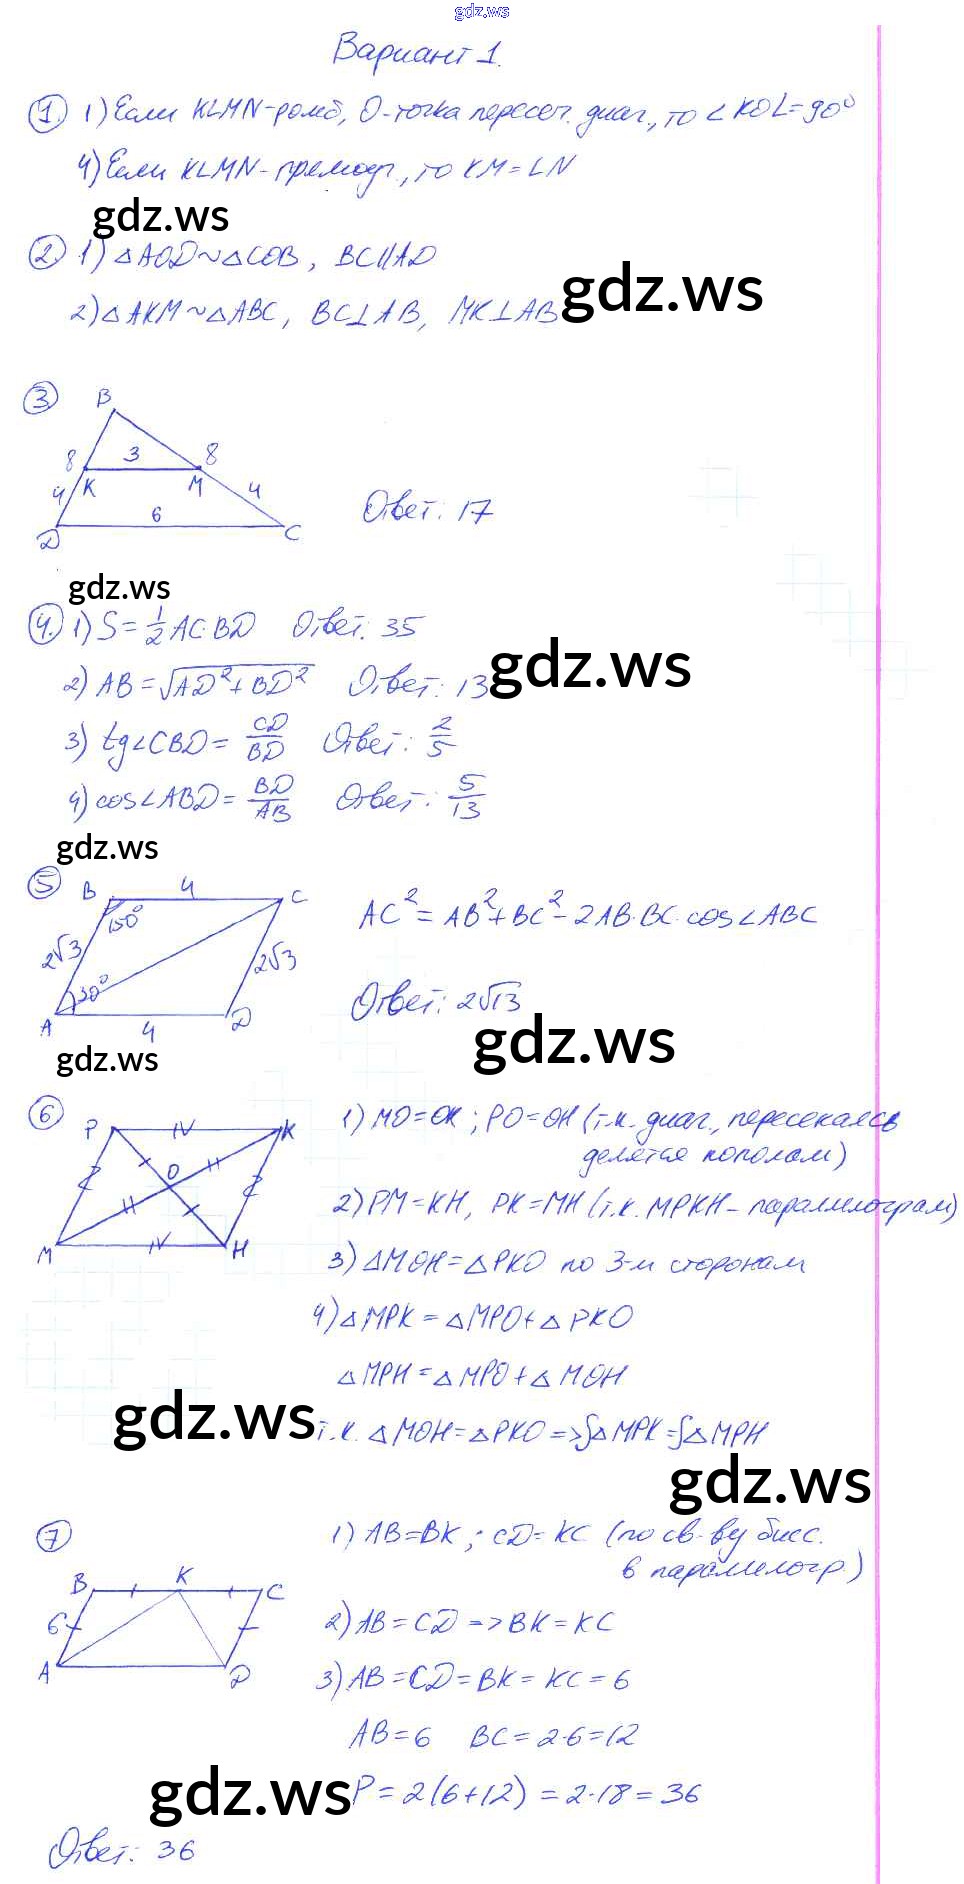 gdz.ws
Вариант 1.
1. 1) Если KLMN-ромб, О-точка пересеч. диаг., то ∠KOL=90°
4) Если KLMN-прямоуг., то KM=LN
gdz.ws
2. 1) △AOD~△COB, BC||AD
gdz.ws
2) △AKM~△ABC, BC⊥AB, MK⊥AB
3
B
8 3 8
4 K M 4
6
D C
Ответ: 17
gdz.ws
4. 1) S=1/2 AC·BD Ответ: 35
gdz.ws
2) AB=√AD²+BD² Ответ: 13
3) tg∠CBD= CD/BD Ответ: 2/5
4) cos∠ABD= BD/AB Ответ: 5/13
gdz.ws
5
B 4 C
150°
2√3 2√3
30°
A 4 D
AC²=AB²+BC²-2AB·BC·cos∠ABC
Ответ: 2√13
gdz.ws
gdz.ws
6
P K
O
M H
1) MO=OK; PO=OH (т.к. диаг., пересекаясь
делятся пополам)
2) PM=KH, PK=MH (т.к. MPKH-параллелограм)
3) △MOH=△PKO по 3-м сторонам
4) △MPK=△MPO+△PKO
△MPH=△MPO+△MOH
gdz.ws
т.к. △MOH=△PKO=>S△MPK=S△MPH
gdz.ws
7
B K C
6
A D
1) AB=BK; CD=KC (по св-ву бисс.
в параллелогр.)
2) AB=CD=>BK=KC
3) AB=CD=BK=KC=6
AB=6 BC=2·6=12
gdz.ws
P=2(6+12)=2·18=36
Ответ: 36